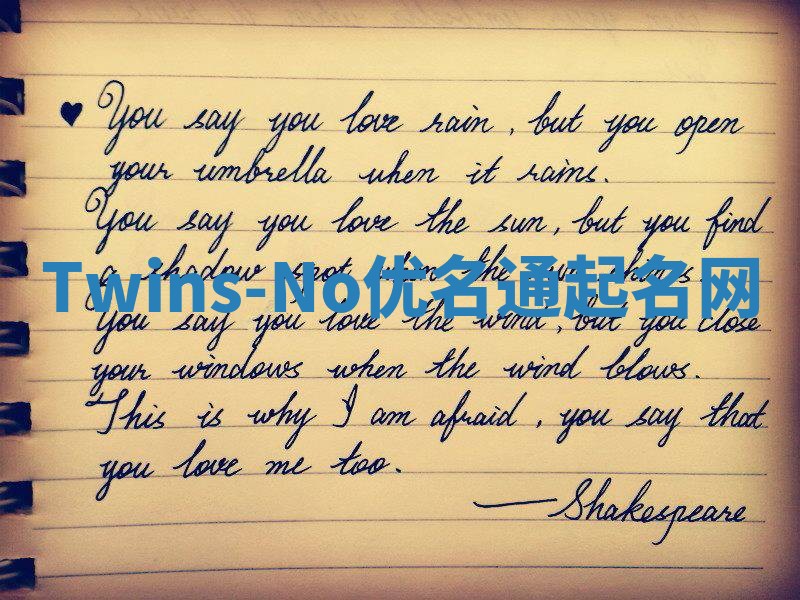 ♥ You say you love rain, but you open
your umbrella when it rains.
You say you love the sun, but you find
a shadow spot when the sun shines.
Twins-No优名通起名网
You say you love the wind, but you close
your windows when the wind blows.
This is why I am afraid, you say that
you love me too.
—Shakespeare